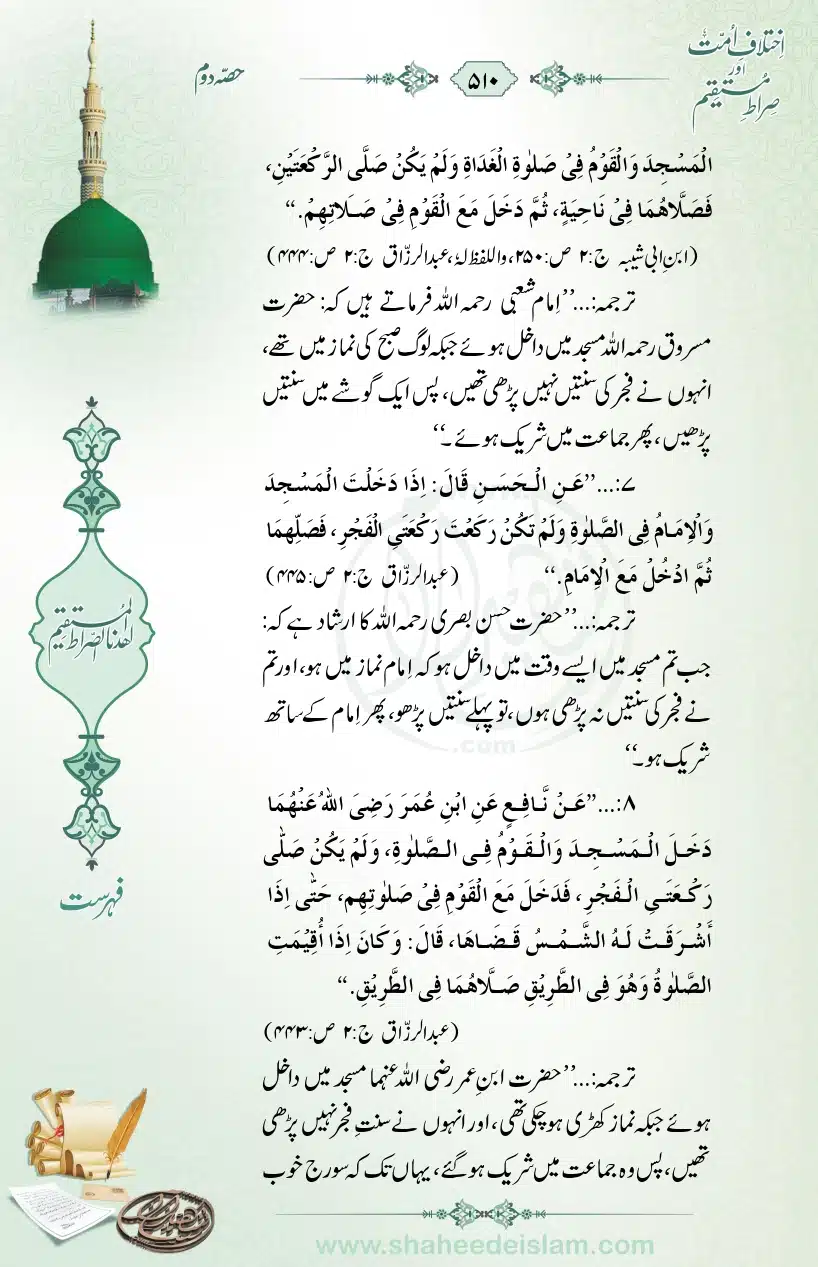 اِختلافِ اُمّت
اور
صِراطِ مُستقیم
۵۱۰
حصّہ دوم
الْمَسْجِدَ وَالْقَوْمُ فِیْ صَلٰوةِ الْغَدَاةِ وَلَمْ یَکُنْ صَلَّی الرَّکْعَتَیْنِ،
فَصَلَّاهُمَا فِیْ نَاحِیَةٍ، ثُمَّ دَخَلَ مَعَ الْقَوْمِ فِیْ صَلَاتِهِمْ.“
(ابنِ ابی شیبہ ج:۲ ص:۲۵۰، واللفظ لہٗ، عبدالرزّاق ج:۲ ص:۴۴۴)
ترجمہ:...’’اِمام شعبی رحمہ اللہ فرماتے ہیں کہ: حضرت
مسروق رحمہ اللہ مسجد میں داخل ہوئے جبکہ لوگ صبح کی نماز میں تھے،
انہوں نے فجر کی سنتیں نہیں پڑھی تھیں، پس ایک گوشے میں سنتیں
پڑھیں، پھر جماعت میں شریک ہوئے۔‘‘
۷:...’’عَنِ الْحَسَنِ قَالَ: اِذَا دَخَلْتَ الْمَسْجِدَ
وَالْاِمَامُ فِی الصَّلٰوةِ وَلَمْ تَکُنْ رَکَعْتَ رَکْعَتَیِ الْفَجْرِ، فَصَلِّهِمَا
ثُمَّ ادْخُلْ مَعَ الْاِمَامِ.‘‘ (عبدالرزّاق ج:۲ ص:۴۴۵)
ترجمہ:...’’حضرت حسن بصری رحمہ اللہ کا ارشاد ہے کہ:
جب تم مسجد میں ایسے وقت میں داخل ہو کہ اِمام نماز میں ہو، اور تم
نے فجر کی سنتیں نہ پڑھی ہوں، تو پہلے سنتیں پڑھو، پھر اِمام کے ساتھ
شریک ہو۔‘‘
۸:...’’عَنْ نَّافِعٍ عَنِ ابْنِ عُمَرَ رَضِیَ اللهُ عَنْهُمَا
دَخَلَ الْمَسْجِدَ وَالْقَوْمُ فِی الصَّلٰوةِ، وَلَمْ یَکُنْ صَلّٰی
رَکْعَتَیِ الْفَجْرِ، فَدَخَلَ مَعَ الْقَوْمِ فِیْ صَلٰوتِهِم، حَتّٰی اِذَا
أَشْرَقَتْ لَهُ الشَّمْسُ قَضَاهَا، قَالَ: وَکَانَ اِذَا أُقِیْمَتِ
الصَّلٰوةُ وَهُوَ فِی الطَّرِیْقِ صَلَّاهُمَا فِی الطَّرِیْقِ.“
(عبدالرزّاق ج:۲ ص:۴۴۳)
ترجمہ:...’’حضرت ابنِ عمر رضی اللہ عنہما مسجد میں داخل
ہوئے جبکہ نماز کھڑی ہوچکی تھی، اور انہوں نے سنتِ فجر نہیں پڑھی
تھیں، پس وہ جماعت میں شریک ہوگئے، یہاں تک کہ سورج خوب
اھدنا الصراط المستقیم
فہرست
www.shaheedeislam.com